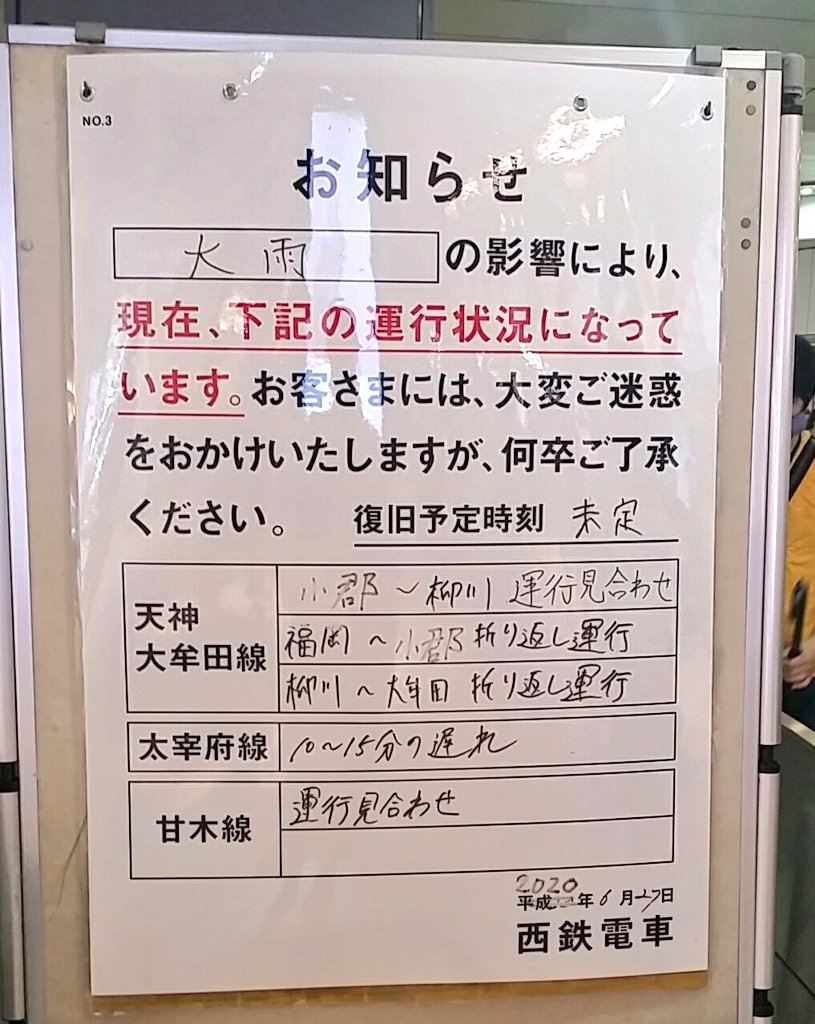 NO.3
お知らせ
大雨の影響により、
現在、下記の運行状況になって
います。お客さまには、大変ご迷惑
をおかけいたしますが、何卒ご了承
ください。 復旧予定時刻 未定
天神
大牟田線
小郡～柳川 運行見合わせ
福岡～小郡 折り返し運行
柳川～大牟田 折り返し運行
太宰府線 10～15分の遅れ
甘木線 運行見合わせ
2020
平成 年6月27日
西鉄電車